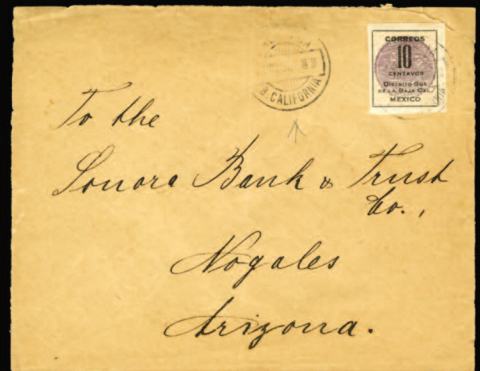 CORREOS
10
CENTAVOS
DISTRITO SUR
DE LA BAJA CAL.
MEXICO
B. CALIFORNIA
To the
Sonora Bank & Trust
Co.,
Nogales
Arizona.